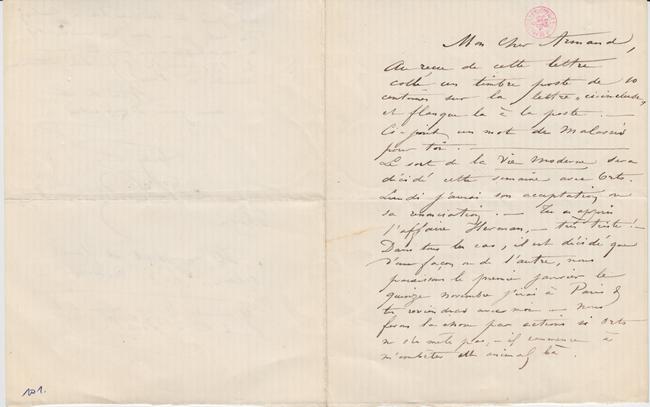 Mon cher Armand,
Au reçu de cette lettre
colle un timbre poste de 10
centimes sur la lettre "ci-incluse"
et flanque la à la poste. —
Ci-joint un mot de Malassis
pour toi. —
Le sort de la Vie Moderne sera
décidé cette semaine avec Orts.
Lundi j'aurai son acceptation ou
sa renonciation. — Tu as appris
l'affaire Herman, — très triste! —
Dans tous les cas, il est décidé que
d'une façon ou de l'autre, nous
paraissons le premier janvier le
quinze novembre j'irai à Paris &
tu reviendras avec moi — nous
ferons la chose par actions si Orts
ne s'en mêle pas, — il commence à
m'embêter cet animal là.
101.